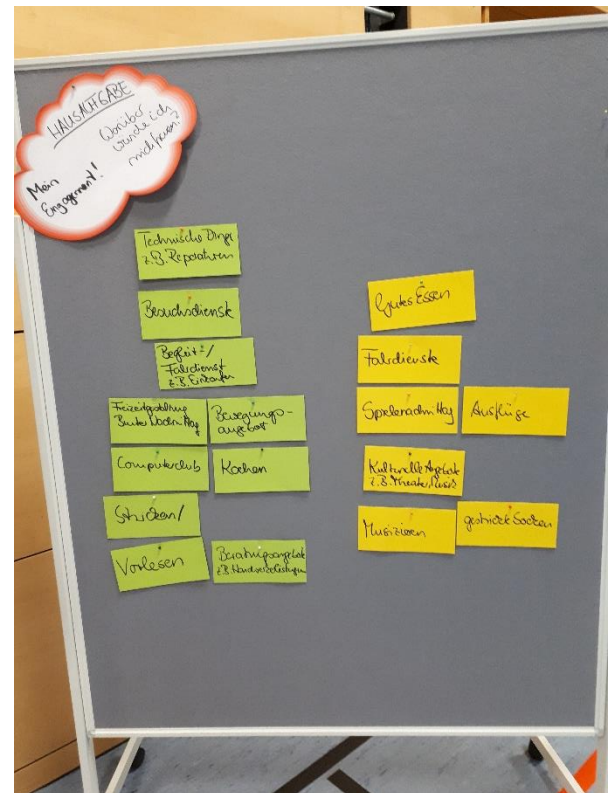 HAUSAUFGABE
Mein
Engagement!
Worüber
würde ich
mich freuen?
Technische Dinge
z.B. Reparaturen
Besuchsdienste
Begleit-/
Fahrdienst
z.B. Einkaufen
Freizeitgestaltung
Bunter Nachmittag
Bewegungs-
angebot
Computerclub
Kochen
Stricken/
Vorlesen
Beratungsangebote
z.B. Handwerkerleistungen
Gutes Essen
Fahrdienste
Spielenachmittag
Ausflüge
Kulturelle Angebote
z.B. Theater, Musik
Musizieren
gestrickte Socken